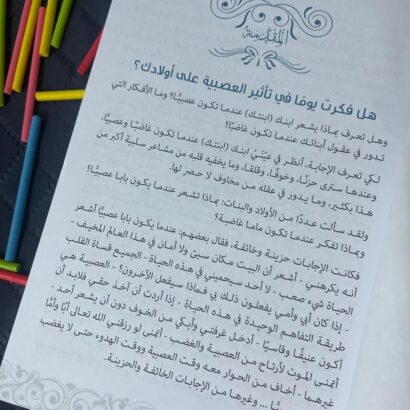 المقدمة
هل فكرت يومًا في تأثير العصبية على أولادك؟
وهل تعرف بماذا يشعر ابنك (ابنتك) عندما تكون عصبيًّا؟ وما الأفكار التي
تدور في عقول أبنائك عندما تكون غاضبًا؟
لكي تعرف الإجابة، أنظر في عَيْنَيْ ابنك (ابنتك) عندما تكون غاضبًا وعصبيًّا،
وعندها سترى حزنًا، وخوفًا، وقلقًا، وما يخفيه قلبه من مشاعر سلبية أكبر من
هذا بكثير، وما يدور في عقله من مخاوف لا حصر لها.
ولقد سألت عددًا من الأولاد والبنات: بماذا تشعر عندما يكون بابا عصبيًّا؟
وبماذا تفكر عندما تكون ماما غاضبة؟
فكانت الإجابات حزينة وخائفة، فقال بعضهم: عندما يكون بابا عصبيًّا أشعر
أنه يكرهني - أشعر أن البيت مكان سيئ ولا أمان في هذا العالم المخيف -
الحياة شيء صعب - لا أحد سيحميني في هذه الحياة - الجميع قساة القلب
- إذا كان أبي وأمي يفعلون ذلك بي فماذا سيفعل الآخرون؟ - العصبية هي
طريقة التفاهم الوحيدة في هذه الحياة - إذا أردت أن آخذ حقي فلابد أن
أكون عنيفًا وقاسيًا - أدخل غرفتي وأبكي من الخوف دون أن يشعر أحد -
أتمنى الموت لأرتاح من العصبية والغضب - أتمنى لو رزقني الله تعالى أبًا وأمًّا
غيرهما - أخاف من الحوار معه وقت العصبية ووقت الهدوء حتى لا يغضب
... وغيرها من الإجابات الخائفة والحزينة.